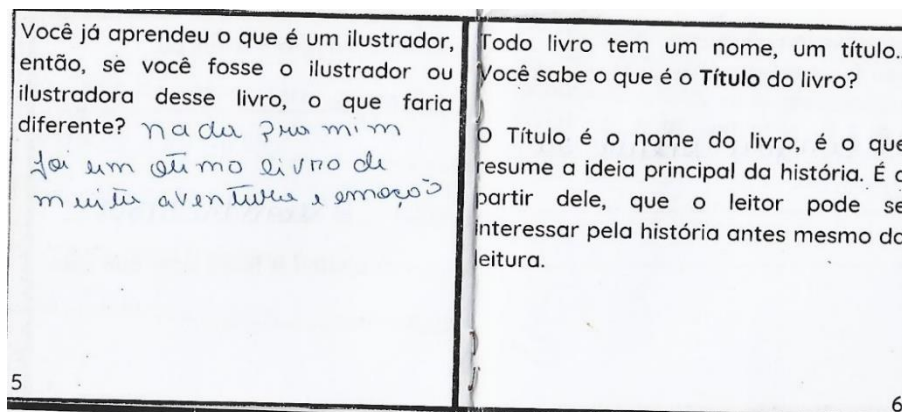 Você já aprendeu o que é um ilustrador,
então, se você fosse o ilustrador ou
ilustradora desse livro, o que faria
diferente? nada pra mim
foi um otimo livro de
muita aventura e emoção
5
Todo livro tem um nome, um título..
Você sabe o que é o Título do livro?
O Título é o nome do livro, é o que
resume a ideia principal da história. É a
partir dele, que o leitor pode se
interessar pela história antes mesmo da
leitura.
6